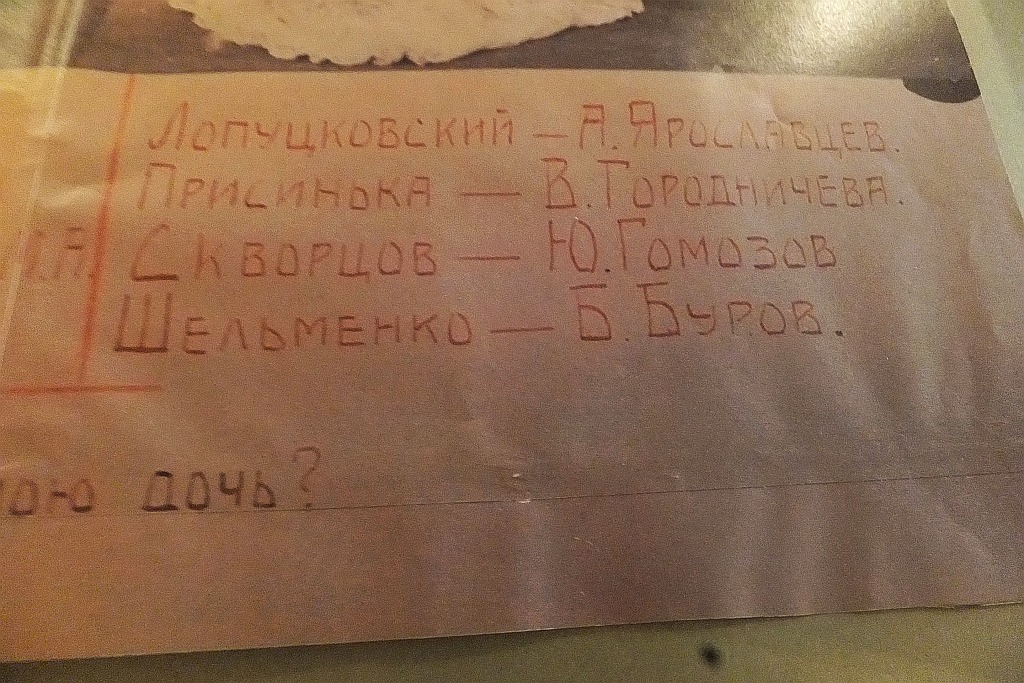 Лопуцковский – А. Ярославцев.
Присинька – В. Городничева.
Скворцов – Ю. Гомозов
Шельменко – Б. Буров.
дочь?